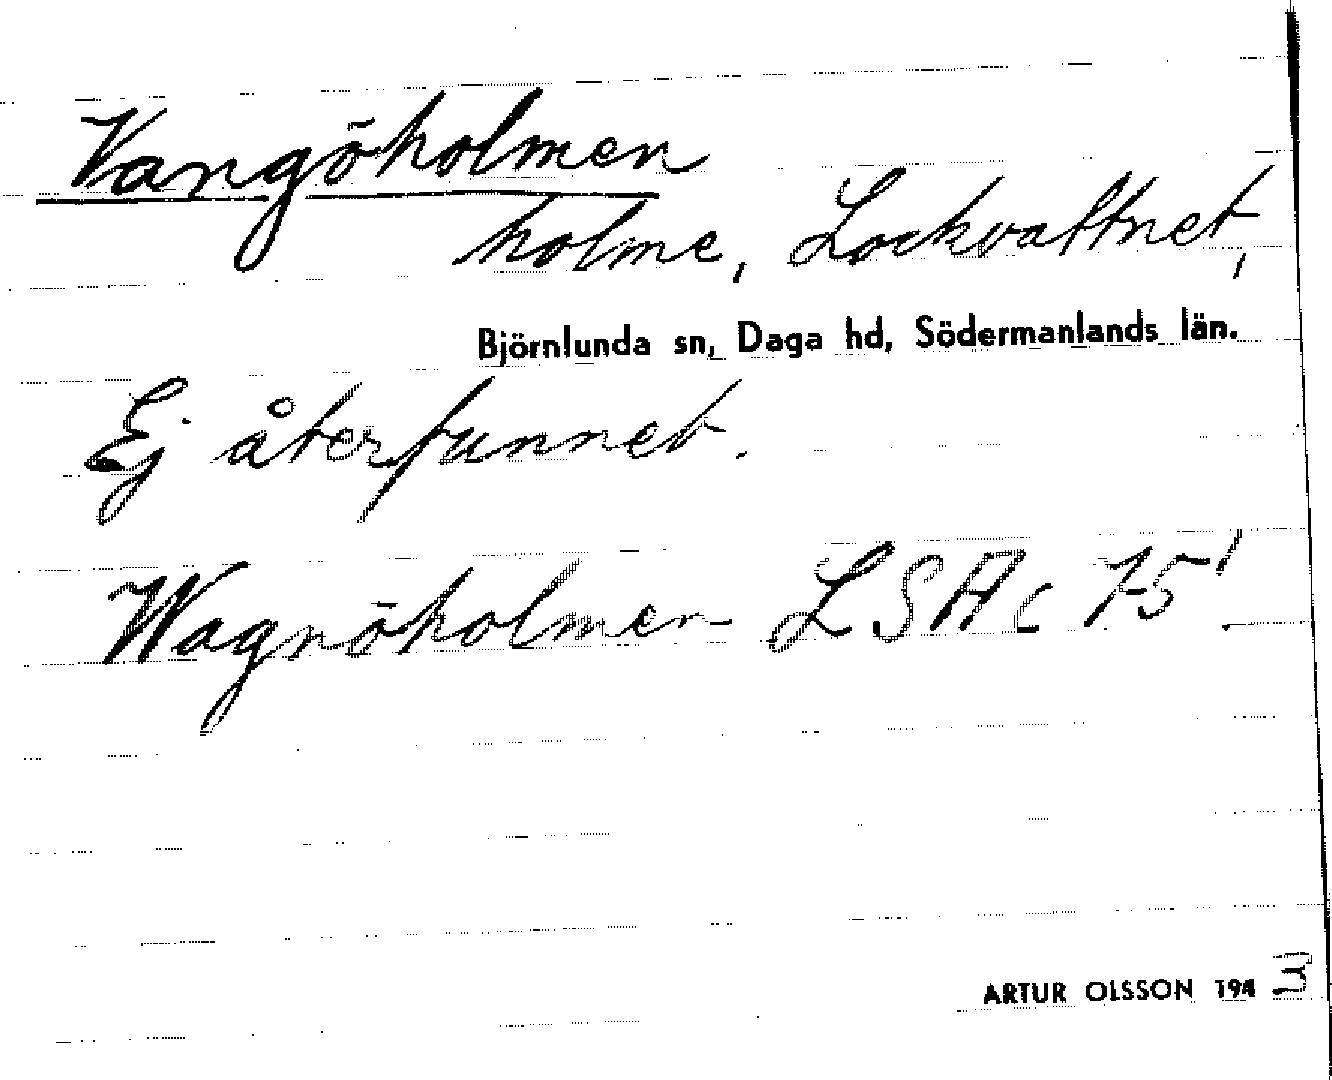 Vangöholmen
holme, Lockvattnet,
Björnlunda sn, Daga hd, Södermanlands län.
Ej återfunnet.
Wagnöholmen LSA c 75!
ARTUR OLSSON 194